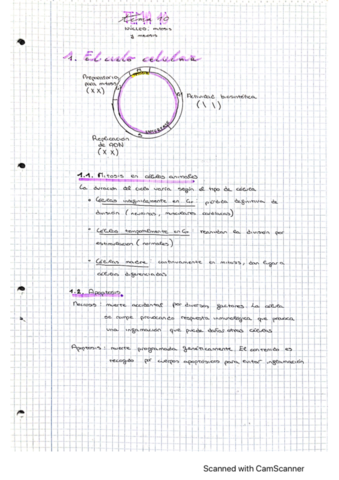 TEMA 10
NÚCLEO, mitosis
y meiosis
1. El ciclo celular
Preparatorio
para mitosis
(X X)
Actividad biosintética
( \ \ )
Replicación
de ADN
(X X)
1.1. Mitosis en células animales
La duración del ciclo varía según el tipo de célula
• Células indefinidamente en G0: pérdida definitiva de
división (neuronas, musculares cardiacas)
• Células temporalmente en G0: reanudan la división por
estimulación (animales)
• Células madre: continuamente en mitosis, dan lugar a
células diferenciadas
1.2. Apoptosis
Necrosis: muerte accidental por diversos factores. La célula
se rompe provocando respuesta inmunológica que provoca
una inflamación que puede dañar otras células
Apoptosis: muerte programada genéticamente. El contenido es
recogido por cuerpos apoptóticos para evitar inflamación
Scanned with CamScanner